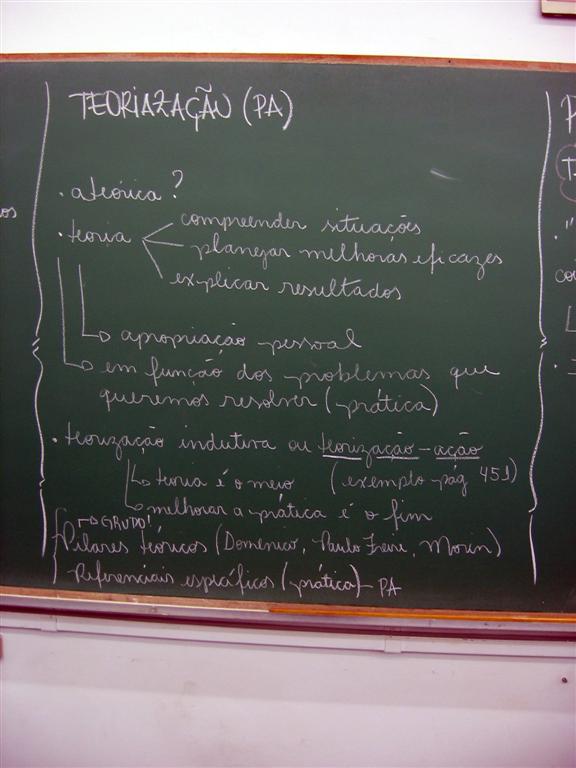 TEORIAZAÇÃO (PA)
. ateórica?
. teoria
compreender situações
planejar melhoras eficazes
explicar resultados
apropriação pessoal
em função dos problemas que
queremos resolver (prática)
. teorização indutiva ou teorização-ação
teoria é o meio (exemplo pág 451)
melhorar a prática é o fim
GRUPO!
Pilares teóricos (Domenico, Paulo Freire, Morin)
Referenciais específicos (prática) - PA